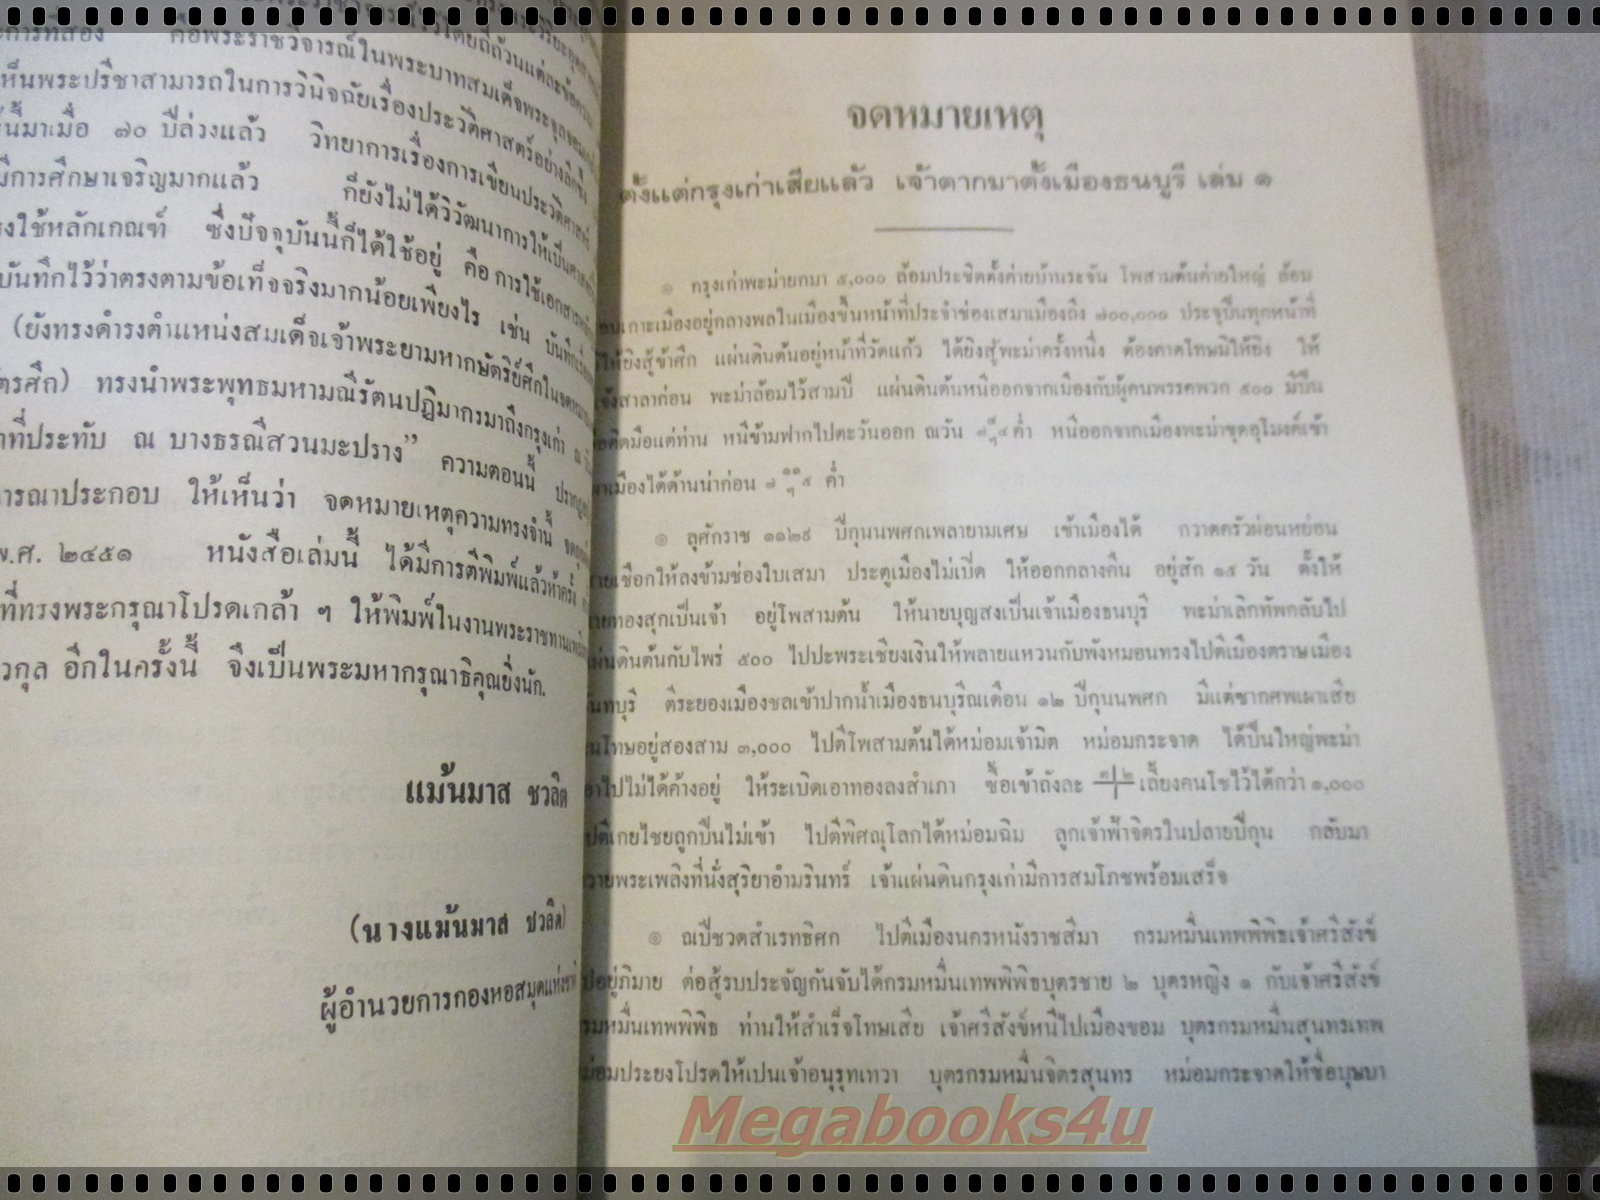 การที่สอง คือพระราชวิจารณ์ในพระบาทสมเด็จพระจุลจอม
เห็นพระปรีชาสามารถในการวินิจฉัยเรื่องประวัติศาสตร์อย่างลึกซึ้ง
นี้มาเมื่อ ๗๐ ปีล่วงแล้ว วิทยาการเรื่องการเขียนประวัติศาสตร์
มีการศึกษาเจริญมากแล้ว ก็ยังไม่ได้วิวัฒนาการให้เป็น
ใช้หลักเกณฑ์ ซึ่งปัจจุบันนี้ก็ได้ใช้อยู่ คือ การใช้เอกสาร
บันทึกไว้ว่าตรงตามข้อเท็จจริงมากน้อยเพียงไร เช่น บันทึก
(ยังทรงดำรงตำแหน่งสมเด็จเจ้าพระยามหากษัตริย์ศึกใน
ทรงนำพระพุทธมหามณีรัตนปฏิมากรมาถึงกรุงเก่า ณ
ที่ประทับ ณ บางธรณีสวนมะปราง” ความตอนนี้
ประกอบ ให้เห็นว่า จดหมายเหตุความทรงจำนี้
พ.ศ. ๒๔๕๑ หนังสือเล่มนี้ ได้มีการตีพิมพ์แล้วห้าครั้ง
ที่ทรงพระกรุณาโปรดเกล้า ฯ ให้พิมพ์ในงานพระราชทานเพลิง
อีกในครั้งนี้ จึงเป็นพระมหากรุณาธิคุณยิ่งนัก.
แม้นมาส ชวลิต
(นางแม้นมาส ชวลิต)
ผู้อำนวยการกองหอสมุดแห่งชาติ
จดหมายเหตุ
ตั้งแต่กรุงเก่าเสียแล้ว เจ้าตากมาตั้งเมืองธนบูรี เล่ม ๑
๏ กรุงเก่าพะม่ายกมา ๕,๐๐๐ ล้อมประชิดตั้งค่ายบ้านระจัน โพสามต้นค่ายใหญ่ ล้อม
เกาะเมืองอยู่กลางพลในเมืองขึ้นหน้าที่ประจำช่องเสมาเมืองถึง ๗๐๐,๐๐๐ ประจุปืนทุกหน้าที่
ให้ยิงสู้ข้าศึก แผ่นดินต้นอยู่หน้าที่วัดแก้ว ได้ยิงสู้พะม่าครั้งหนึ่ง ต้องคาดโทษมิให้ยิง ให้
แจ้งสาลาก่อน พะม่าล้อมไว้สามปี แผ่นดินต้นหนีออกจากเมืองกับผู้คนพรรคพวก ๕๐๐ มีปืน
ติดมือแต่ท่าน หนีข้ามฟากไปตะวันออก ณวัน ค่ำ หนีออกจากเมืองพะม่าขุดอุโมงค์เข้า
เมืองได้ด้านน่าก่อน ค่ำ
๏ ลุศักราช ๑๑๒๙ ปีกุนนพศกเพลายามเศษ เข้าเมืองได้ กวาดครัวผ่อนหย่อน
เชือกให้ลงข้ามช่องใบเสมา ประตูเมืองไม่เปิด ให้ออกกลางคืน อยู่สัก ๑๕ วัน ตั้งให้
นายทองสุกเป็นเจ้า อยู่โพสามต้น ให้นายบุญสงเป็นเจ้าเมืองธนบุรี พะม่าเลิกทัพกลับไป
แผ่นดินต้นกับไพร่ ๕๐๐ ไปปะพระเชียงเงินให้พลายแหวนกับพังหมอนทรงไปตีเมืองตราษเมือง
จันทบุรี ตีระยองเมืองชลเข้าปากน้ำเมืองธนบุรีณเดือน ๑๒ ปีกุนนพศก มีแต่ซากศพเผาเสีย
คนโทษอยู่สองสาม ๓,๐๐๐ ไปตีโพสามต้นได้หม่อมเจ้ามิต หม่อมกระจาด ได้ปืนใหญ่พะม่า
เอาไปไม่ได้ค้างอยู่ ให้ระเบิดเอาทองลงสำเภา ซื้อเข้าถังละ เลี้ยงคนโซไว้ได้กว่า ๑,๐๐๐
ไปตีเกยไชยถูกปืนไม่เข้า ไปตีพิศณุโลกได้หม่อมฉิม ลูกเจ้าฟ้าจิตรในปลายปีกุน กลับมา
ถวายพระเพลิงที่นั่งสุริยาอำมรินทร์ เจ้าแผ่นดินกรุงเก่ามีการสมโภชพร้อมเสร็จ
๏ ณปีชวดสำเรทธิศก ไปตีเมืองนครหนังราชสีมา กรมหมื่นเทพพิพิธเจ้าศรีสังข์
ไปอยู่ภิมาย ต่อสู้รบประจัญกันจับได้กรมหมื่นเทพพิพิธบุตรชาย ๒ บุตรหญิง ๑ กับเจ้าศรีสังข์
กรมหมื่นเทพพิพิธ ท่านให้สำเร็จโทษเสีย เจ้าศรีสังข์หนีไปเมืองขอม บุตรกรมหมื่นสุนทรเทพ
หม่อมประยงโปรดให้เปนเจ้าอนุรุทเทวา บุตรกรมหมื่นจิตรสุนทร หม่อมกระจาดให้ชื่อบุษบา
Megabooks4u